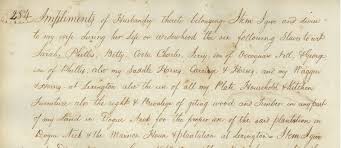 284 Impliments of Husbandry thereto belonging Item I give and devise
to my wife during her life or widowhood the use following Slaves to wit
Sarah, Phillis, Betty, Cook Charles, Jerry, son of Occoquan Nell, & George
son of Phillis, also my Saddle Horses, Carriage & Horses, and my Waggon
& at Lexington also the use of all my Plate Household & Kitchen
Furniture also the right & Priviledge of giting wood and Timber in any part
of my Land in Dogue Neck for the proper use of the said plantation in
Dogue Neck & the Mansion House & Plantation at Lexington - Item I give